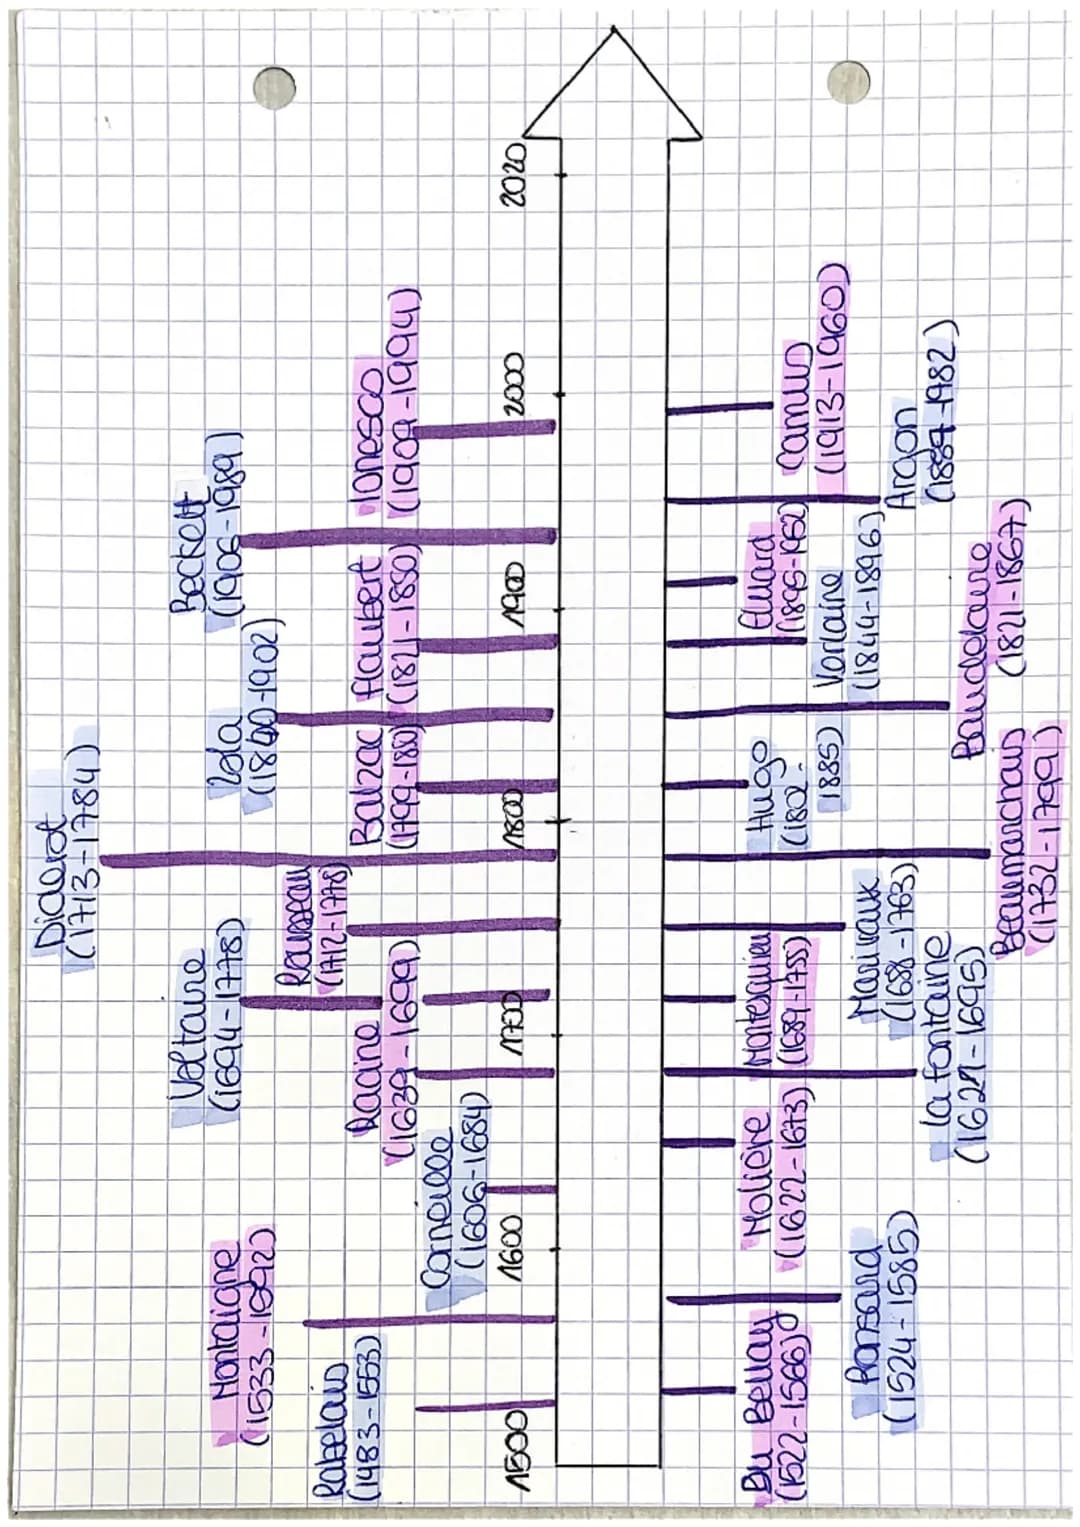 Diderot
(1713-1784)
Voltaire
(1694-1778)
Beckett
(1906-1989)
Zola
(1840-1902)
Montaigne
(1533-1592)
Rousseau
(1712-1778)
Rabelais
(1483-1553)
Ionesco
(1909-1994)
Flaubert
(1821-1880)
Balzac
Racine
(1639-1699)
Corneille
(1606-1684)
1500
1600
1700
1800
1900
2000
2020
Du Bellay
(1522-1566)
Molière
(1622-1673)
Montesquieu
(1689-1755)
Hugo
(1802-
1885)
Eluard
(1895-1952)
Camus
(1913-1960)
Ronsard
(1524-1585)
Marivaux
(1688-1763)
Verlaine
(1844-1896)
Aragon
La Fontaine
Beaumarchais
(1732-1799)
Baudelaire
(1821-1867)